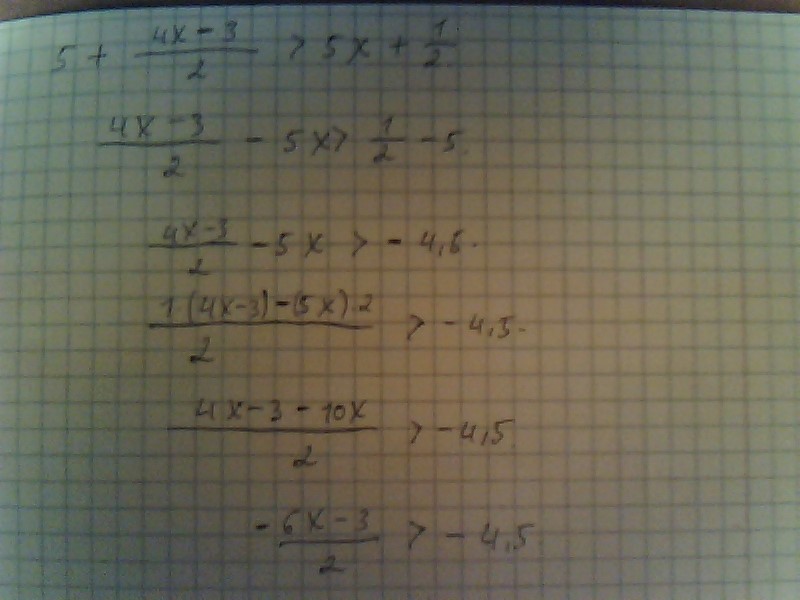 5 + (4x - 3)/2 > 5x + 1/2
(4x - 3)/2 - 5x > 1/2 - 5.
(4x - 3)/2 - 5x > - 4,5.
(1·(4x-3) - (5x)·2)/2 > - 4,5.
(4x - 3 - 10x)/2 > - 4,5
- (6x - 3)/2 > - 4,5